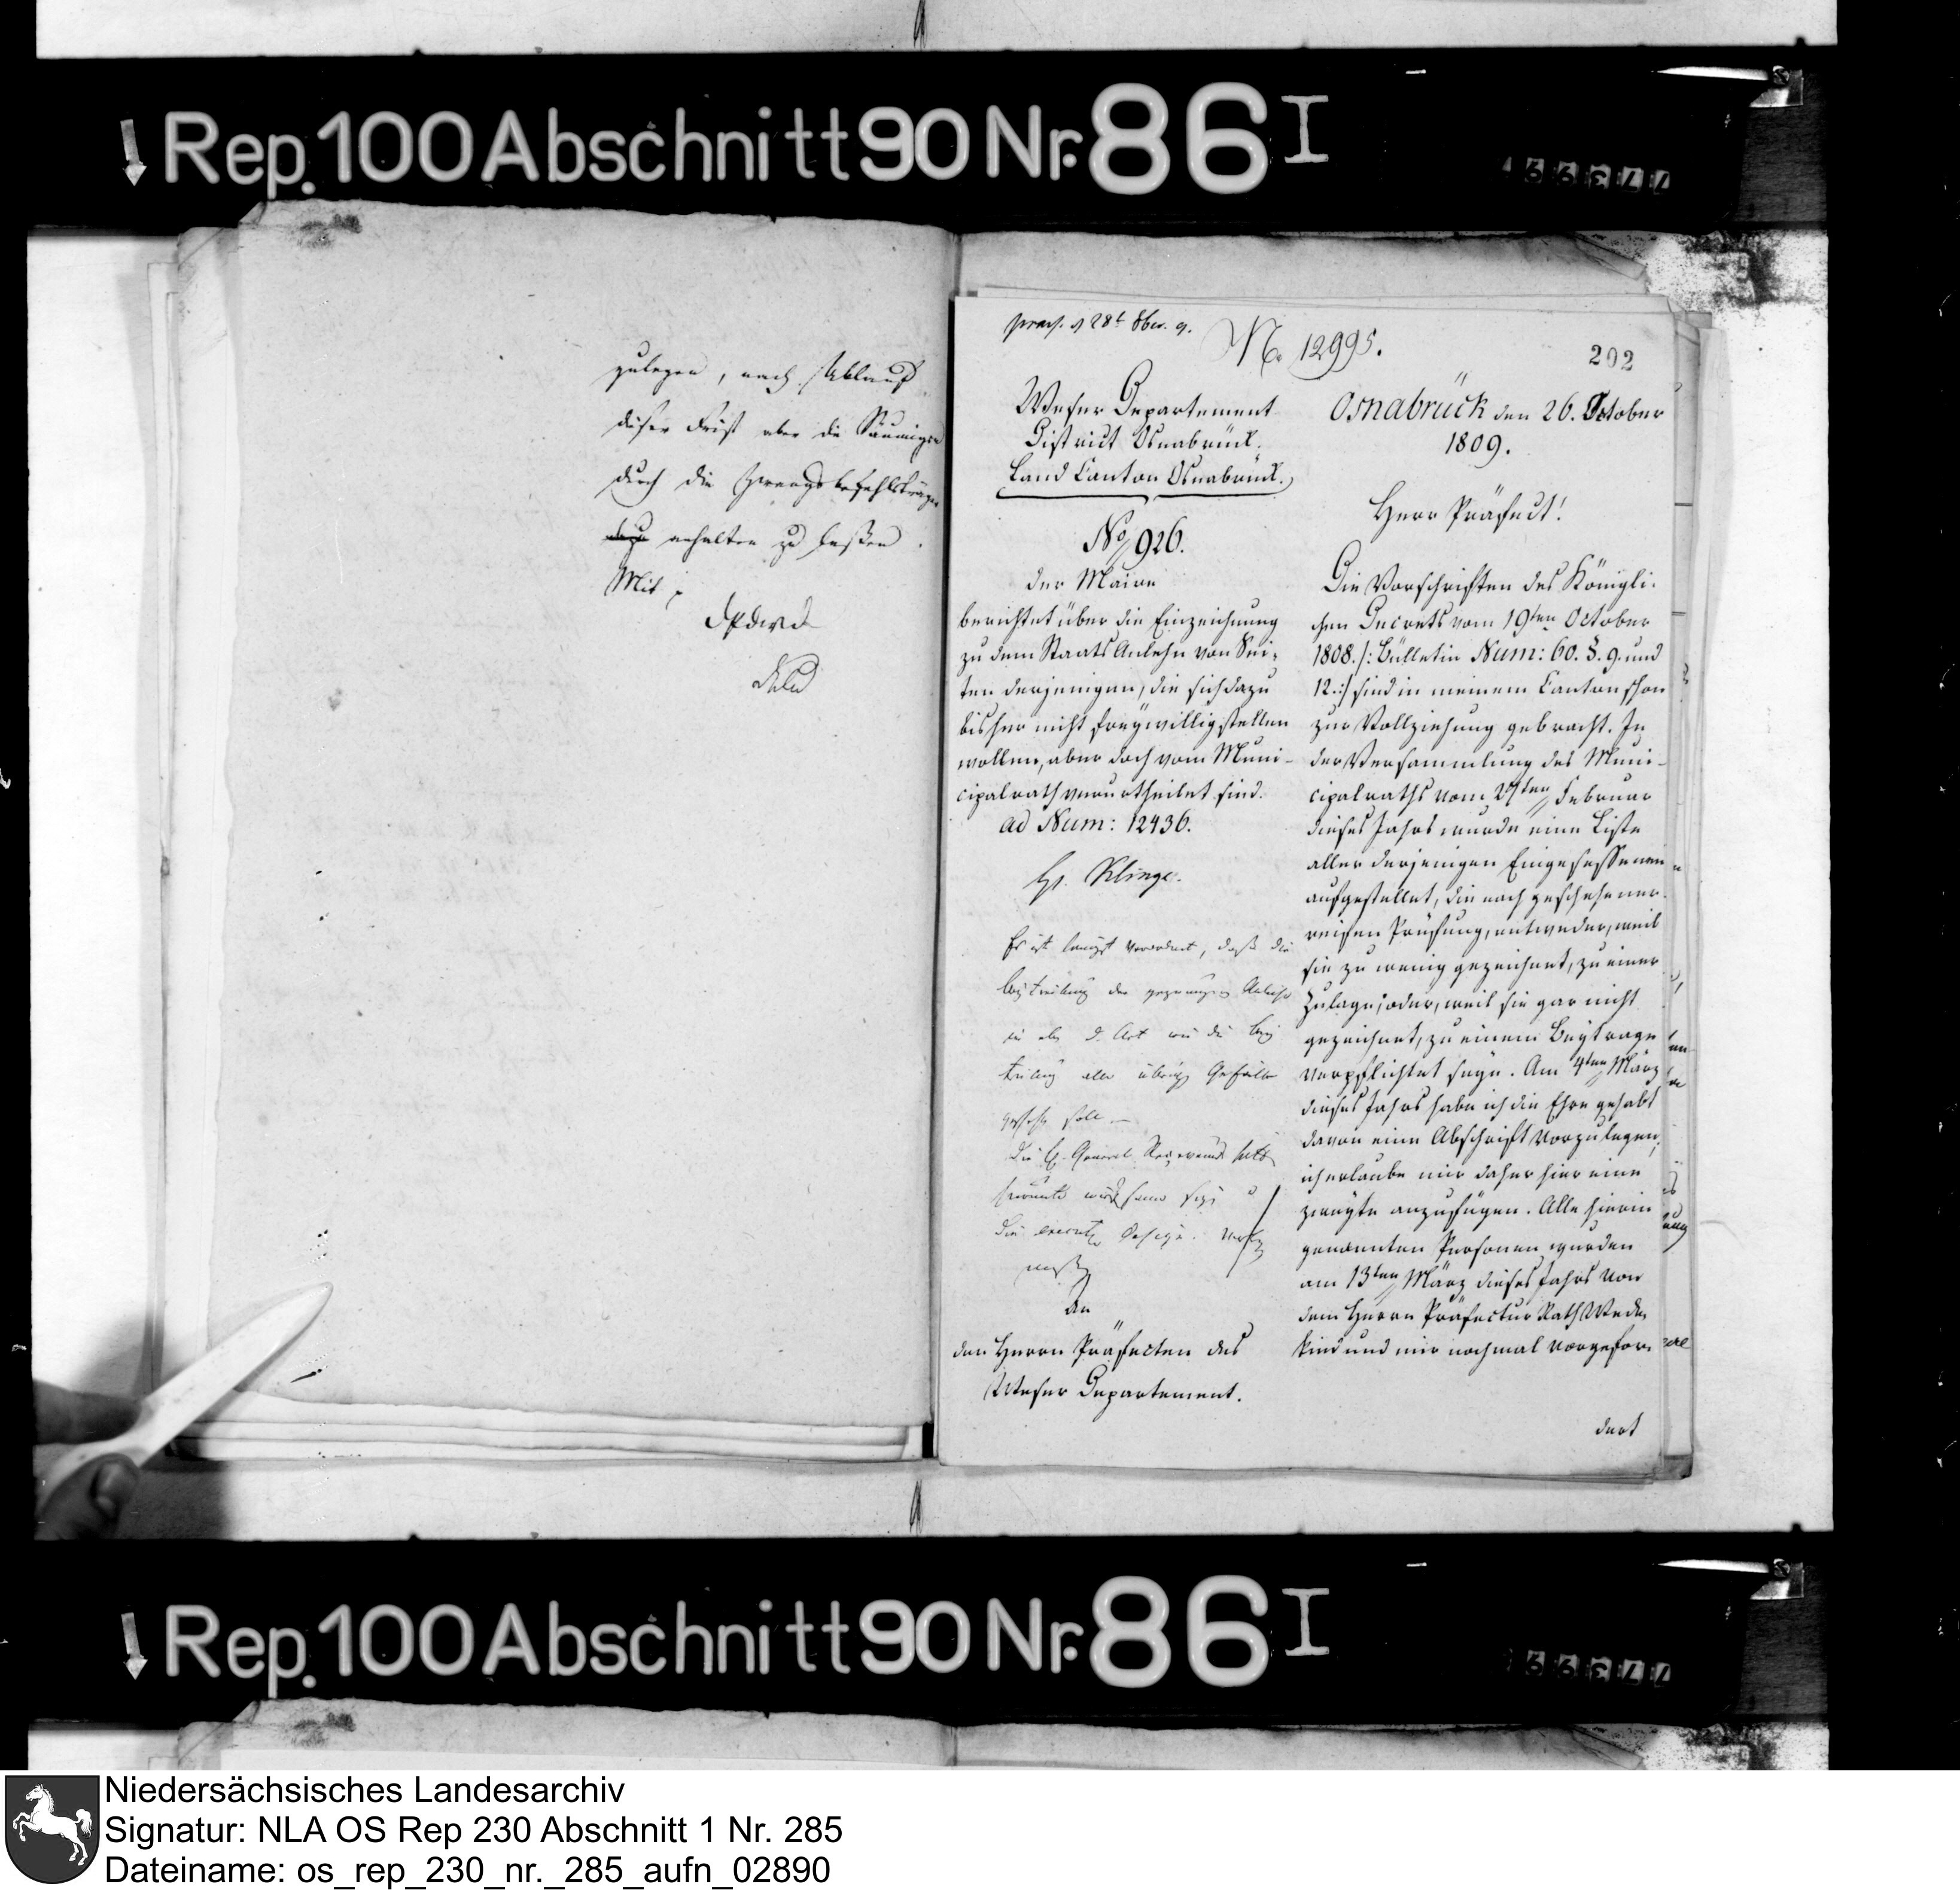 Rep. 100 Abschnitt 90 Nr. 86 I
zulegen, nach Ablauf
dieser Frist aber die Säumigen
durch die Zwangsbefehlsträger
dazu anhalten zu laßen.
Mit
praes. d 28t 8br. 9.
No. 12995.
202
Weser Departement
District Osnabrück.
Land Canton Osnabrück.
No 926.
Der Maire
berichtet über die Einzeichnung
zu dem Staats Anlehn von Sei-
ten derjenigen, die sich dazu
bisher nicht freywillig stellen
wollen, aber doch vom Muni-
cipalrath verurtheilet sind.
ad Num: 12436.
H. Klinge.
Es ist längst verordnet, daß die
Beytreibung der gezwungenen Anleihe
in eben d. Art wie die Bey
treibung aller übrigen Gefälle
geschehen soll.
An
den Herrn Präfecten des
Weser Departement.
Osnabrück den 26. October
1809.
Herr Präfect!
Die Vorschriften des Königli-
chen Decrets vom 19ten October
1808. /: Bülletin Num: 60. §. 9. und
12. :/ sind in meinem Canton schon
zur Vollziehung gebracht. In
der Versammlung des Muni-
cipalraths vom Februar
dieses Jahrs wurde eine Liste
aller derjenigen Eingesessenen
aufgestellet, die nach geschehener
Prüfung, entweder, weil
sie zu wenig gezeichnet, zu einer
Zulage; oder, weil sie gar nicht
gezeichnet, zu einem Beytrage
verpflichtet seyn. Am 4ten März
dieses Jahrs habe ich die Ehre gehabt
davon eine Abschrift vorzulegen;
ich erlaube mir daher hier eine
zweyte anzufügen. Alle hierin
genannten Personen wurden
am 13ten März dieses Jahrs von
dem Herrn Präfectur Rath Wede-
kind und mir nochmal vorgefor-
dert
Rep. 100 Abschnitt 90 Nr. 86 I
Niedersächsisches Landesarchiv
Signatur: NLA OS Rep 230 Abschnitt 1 Nr. 285
Dateiname: os_rep_230_nr._285_aufn_02890